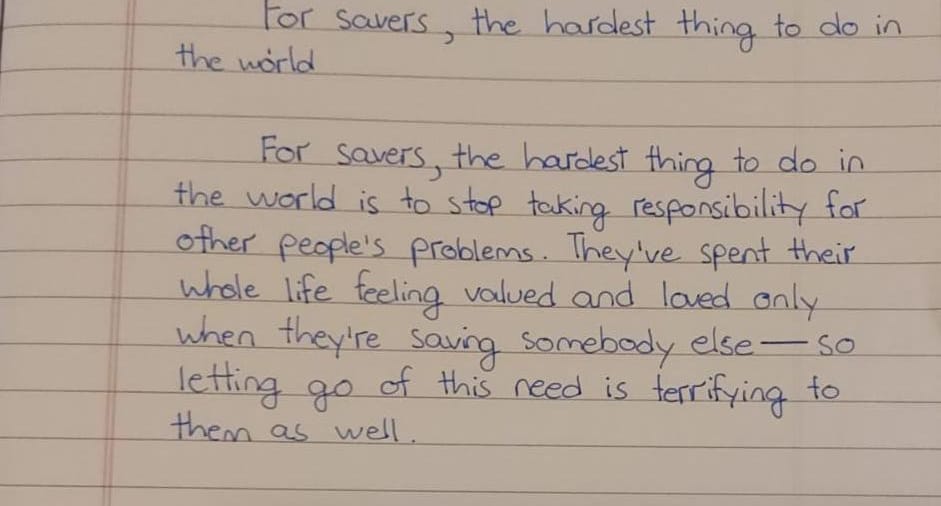 For savers, the hardest thing to do in
the world
For savers, the hardest thing to do in
the world is to stop taking responsibility for
other people's problems. They've spent their
whole life feeling valued and loved only
when they're saving somebody else — so
letting go of this need is terrifying to
them as well.